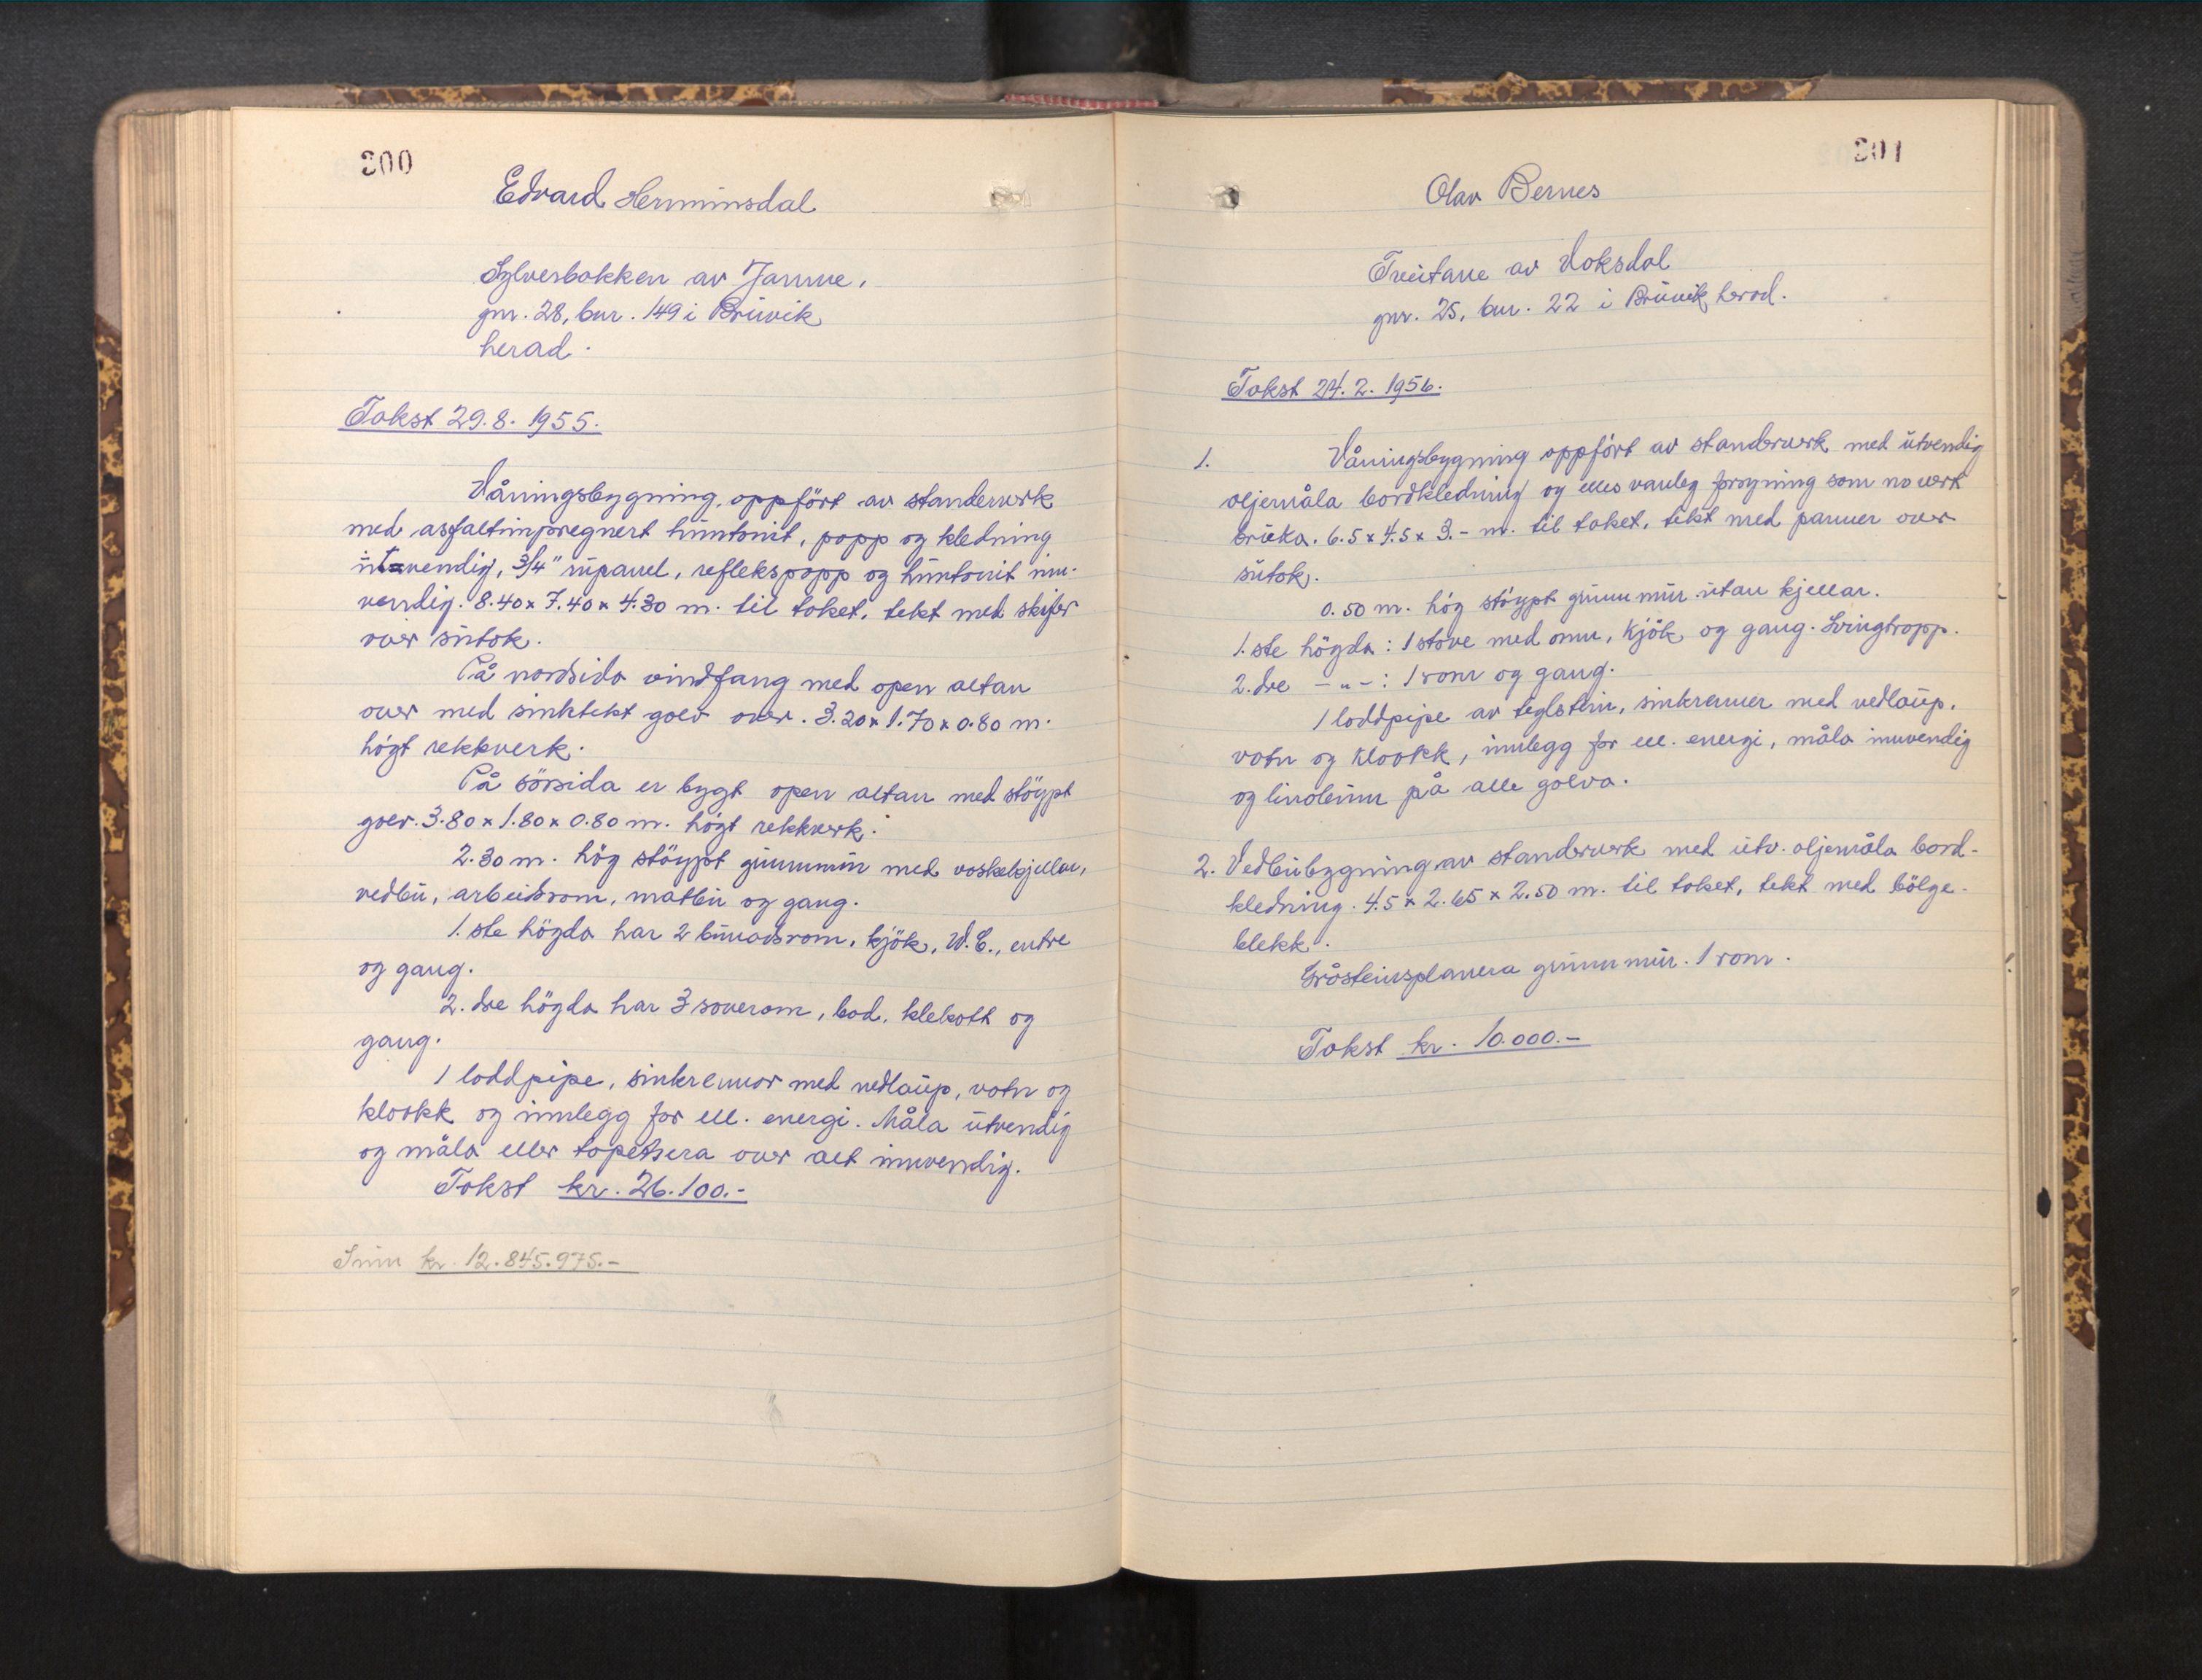 200
Edvard Herminsdal
Sylverbakken av Jamne,
gnr. 28, bnr. 149 i Brüvik
herad.
Takst 29.8. 1955.
Våningsbygning, oppfört av standerverk
med asfaltimpregnert hüntonit, papp og kledning
ütvendig, 3/4" üpanel, reflekspapp og hüntonit inn-
vendig. 8.40 x 7.40 x 4.30 m. til taket, tekt med skifer
over sütak.
På nordsida vindfang med open altan
over med sinktekt golv over. 3.20 x 1.70 x 0.80 m.
högt rekkverk.
På sörsida er bygt open altan med stöypt
golv. 3.80 x 1.80 x 0.80 m. högt rekkverk.
2.30 m. hög stöypt grünnmür med vaskekjellar,
vedbü, arbeidsrom, matbü og gang.
1.ste högda har 2 bünadsrom, kjök, W.C., entre
og gang.
2.dre högda har 3 soverom, bad, klekott og
gang.
1 loddpipe, sinkrennor med nedlaüp, vatn og
kloakk og innlegg for ell. energi. Måla ütvendig
og måla eller tapetsera over alt innvendig.
Takst kr. 26.100.-
Süm kr. 12.845.975.-
201
Olav Bernes
Treitane av Voksdal
gnr. 25, bnr. 22 i Brüvik herad.
Takst 24.2. 1956.
1. Våningsbygning oppfört av standerverk med ütvendig
oljemåla bordkledning og elles vanleg forsyning som no vert
brüka. 6.5 x 4.5 x 3.- m. til taket, tekt med panner over
sütak.
0.50 m. hög stöypt grünnmür ütan kjellar.
1.ste högda: 1 stove med omn, kjök og gang. Svingtrapp.
2.dre -"-: 1 rom og gang.
1 loddpipe av teglstein, sinkrenner med nedlaüp,
vatn og kloakk, innlegg for ell. energi, måla innvendig
og linoleüm på alle golva.
2. Vedbübygning av standerverk med ütv. oljemåla bord-
kledning. 4.5 x 2.65 x 2.50 m. til taket, tekt med bölge-
blekk.
Gråsteinsplanera grünnmür. 1 rom.
Takst kr. 10.000.-